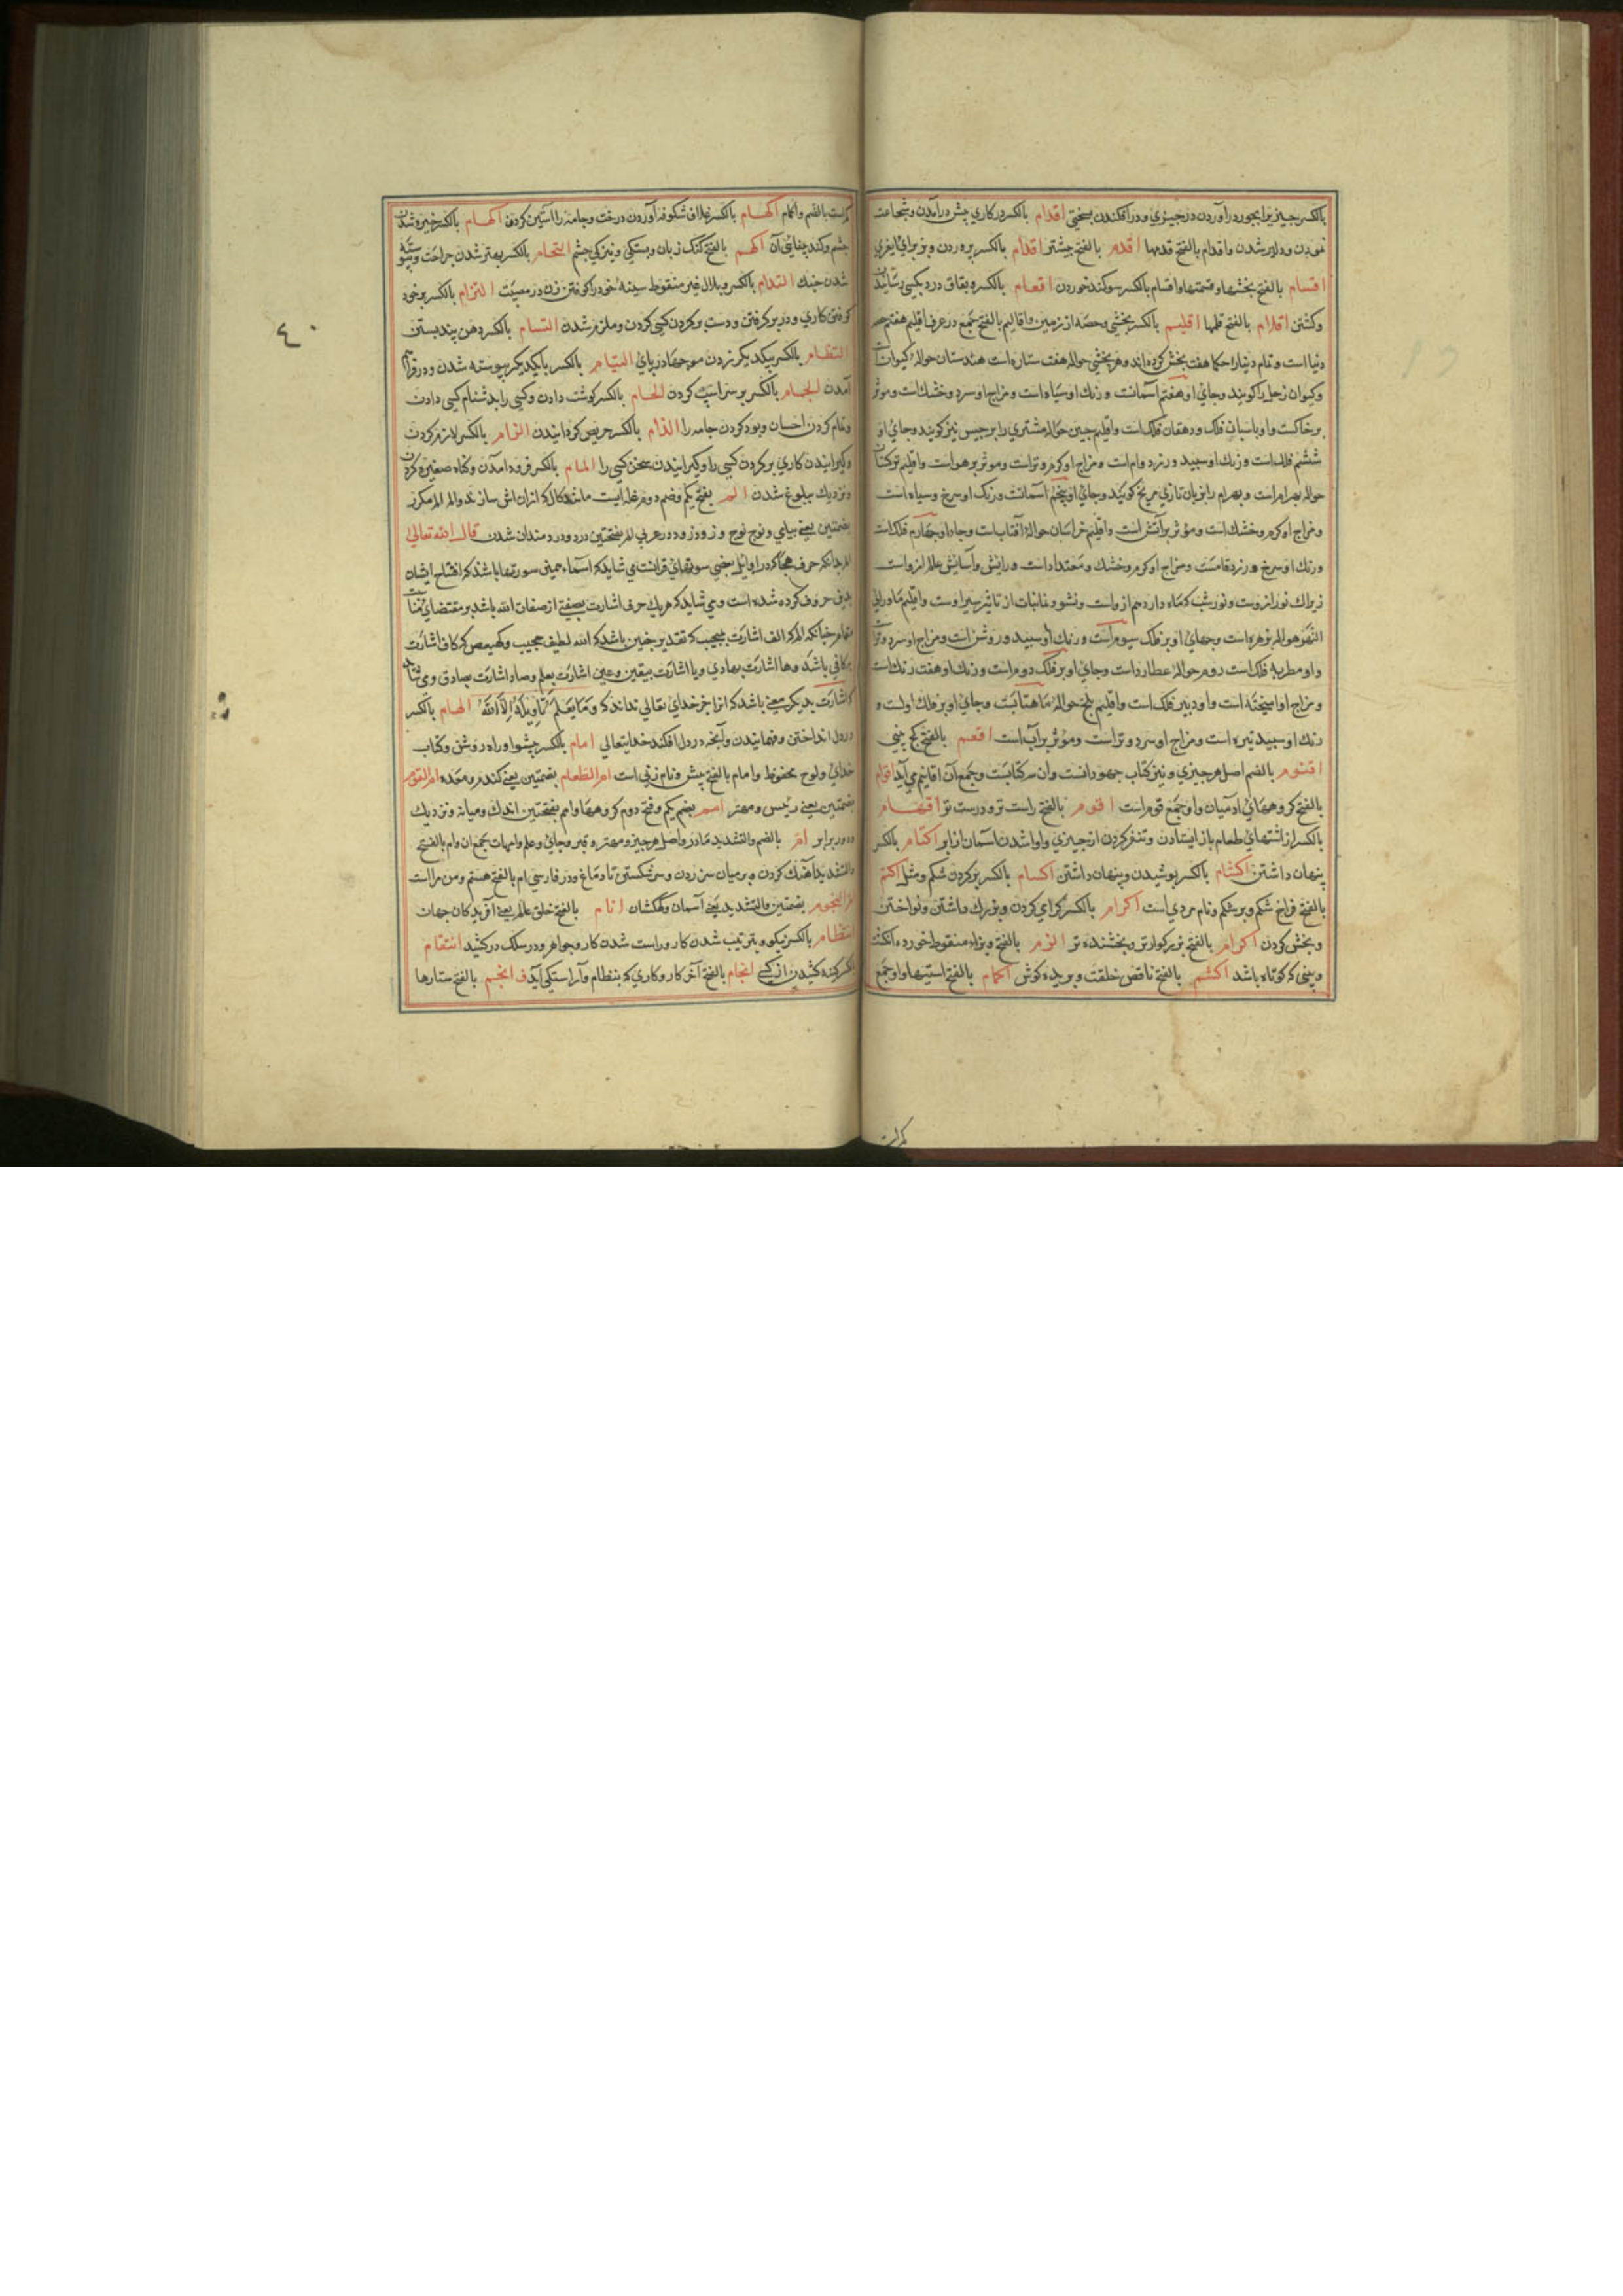 بالکسر چیزیرا بجور در آوردن در چیزی و در افکندن بسختی اقدام بالکسر در کاری پیش در آمدن و شجاعت
نمودن و دلاور شدن و اقدام بالفتح قدمها اقدم بالفتح پیشتر اقدام بالکسر
اقسام بالفتح بخشها و قسمتها و اقسام بالکسر سوکند خوردن اقعام بالکسر و بقاف درد بکسی رسانیدن
و کشتن اقلام بالفتح قلمها اقلیم بالکسر بخشی و حصه از زمین و اقالیم بالفتح جمع در عرف اقلیم هفتم حصه
دنیا است و تمام دنیا را حکما هفت بخش کرده اند و هر بخشی حواله هفت ستاره است هندستان حواله کیوان
و کیوان زحل را کویند و جای او هفتم آسمانست و رنک او سیاه است و مزاج او سرد و خشک است و موثر
بر خاکست و او پاسبان فلک و دهقان فلک است و اقلیم چین حواله مشتری را برجیس نیز کویند و جای او
ششم فلک است و رنک او سپید و زرد وام است و مزاج او کرم و تر است و موثر بر هواست و اقلیم ترکستان
حواله بهرام است و بهرام را بزبان تازی مریخ کویند و جای او پنجم آسمانست و رنک او سرخ و سیاه است
و مزاج او کرم و خشک است و موثر بر آتش است و اقلیم خراسان حواله آفتاب است و جاء او چهارم فلک است
و رنک او سرخ و زرد فامست و مزاج او کرم و خشک و معتدل است و رایش و آسایش عالم از و است
زیراک نور از وست و نور شب که ماه دارد هم از و است و نشو و نما نبات از تاثیر سیر اوست و اقلیم ماوراء
النهر حواله زهره است و جهای او بر فلک سیوم است و رنک او سپید و روشن است و مزاج او سرد و تر
و او مطربه فلک است روم حواله عطارد است و جای او بر فلک دوم است و رنک او هفت رنک است
و مزاج او آمیخته است و او دبیر فلک است و اقلیم بلخ حواله ماهتابست و جای او بر فلک اولست و
رنک او سپید تیره است و مزاج او سرد و تر است و موثر بر آب است اقعم بالفتح کج بینی
اقنوم بالضم اصل هر چیزی و نیز کتاب جهودانست و ان سه کتابست و جمع آن اقانیم می آید اقوام
بالفتح کروههای ادمیان و او جمع قوم است اقوم بالفتح راست تر و درست تر اقهام
بالکسر از اشتهای طعام باز ایستادن و تنفر کردن از چیزی و وا شدن آسمان از ابر اکتام بالکسر
پنهان داشتن اکتتام بالکسر پوشیدن و پنهان داشتن اکسام بالکسر پر کردن شکم و مثل اکثم
بالفتح فراخ شکم و پر شکم و نام مردی است اکرام بالکسر کرامی کردن و بزرک داشتن و نواختن
و بخش کردن اکرام بالفتح بزرکوارتر و بخشنده تر اکزم بالفتح و بزاء منقوط خورده انکشت
و بینی که کوتاه باشد اکشم بالفتح ناقص خلقت و بریده کوش اکمام بالفتح استینها و او جمع
کم است
کم است بالضم و اکمام بالکسر غلاف شکوفه آوردن درخت و جامه را آستین کردن اکهام بالکسر خیره شدن
چشم و کند بینایی آن اکهم بالفتح کنک زبان و بستکی و نیز کی چشم التحام بالکسر بهتر شدن جراحت و پیوسته
شدن جنک التدام بالکسر و بدال غیر منقوط سینه خود را کوفتن زن در مصیبت التزام بالکسر بر خود
کرفتن کاری و در بر کرفتن و دست بر کردن کسی کردن و ملزم شدن التسام بالکسر دهن بند بستن
التطام بالکسر بیکدیکر زدن موجها دریای التیام بالکسر با یکدیکر پیوسته شدن و در فراهم
آمدن الجام بالکسر بر سر اسپ کردن الحام بالکسر کوشت دادن و کسی را بدشنام کسی دادن
و تمام کردن احسان و پود کردن جامه را الذام بالکسر حریص کردانیدن الزام بالکسر لازم کردن
و کیرانیدن کاری بر کردن کسی را و کیرانیدن سخن کسی را المام بالکسر فرود آمدن و کناه صغیره کردن
و نزدیک ببلوغ شدن الم بفتح یکم و ضم دوم غله ایست مانند کال که ازان اش سازند و الم الم مکرر
بضمتین یعنی پیاپی و فوج فوج و زود زود و در عربی الم بفتحتین درد و دردمندان شدن قال الله تعالی
الم بدانکه حرف هجا که در اوایل بعضی سورتهای قرانست می شاید که اسماء همین سورتها باشد که افتتاح ایشان
بدین حروف کرده شده است و می شاید که هر یک حرف اشارت بصفتی از صفات الله باشد بر مقتضای
مقام چنانکه الم که الف اشارت بمجیب که تقدیر چنین باشد که الله لطیف مجیب و کهیعص که کاف اشارت
بر کافی باشد و ها اشارت بهادی و یا اشارت بیقین و عین اشارت بعلم و صاد اشارت بصادق و می شاید
که اشارت بدیکر معنی باشد که انرا جز خدای تعالی نداند که و ما یعلم تاویله الا الله الهام بالکسر
در دل انداختن و فهمانیدن و آنچه در دل افکند خدایتعالی امام بالکسر پیشوا و راه روشن و کتاب
خدای و لوح محفوظ و امام بالفتح پیش و نام زنی است ام الطعام بضمتین یعنی کندم و معده ام القوم
بضمتین یعنی رئیس و مهتر امم بضم یکم و فتح دوم کروهها و امم بفتحتین اندک و میانه و نزدیک
و برابر ام بالضم و التشدید مادر و اصل هر چیز و مهتر و قبر و جای و علم و امهات جمع ان و ام بالفتح
و التشدید آهنک کردن و بر میان سر زدن و سر شکستن تا دماغ و در فارسی ام بالفتح هستم و من مراست
ام النجوم بضمتین و التشدید یعنی آسمان و کهکشان انام بالفتح خلق عالم یعنی آفریدکان جهان
انتظام بالکسر نیکو و بترتیب شدن کار و راست شدن کار و جواهر و در سلک در کشید انتقام
بالکسر کینه کشیدن از کسی انجام بالفتح آخر کار و کاری که بنظام و آراستکی آید انجم بالفتح ستارها
٤٠